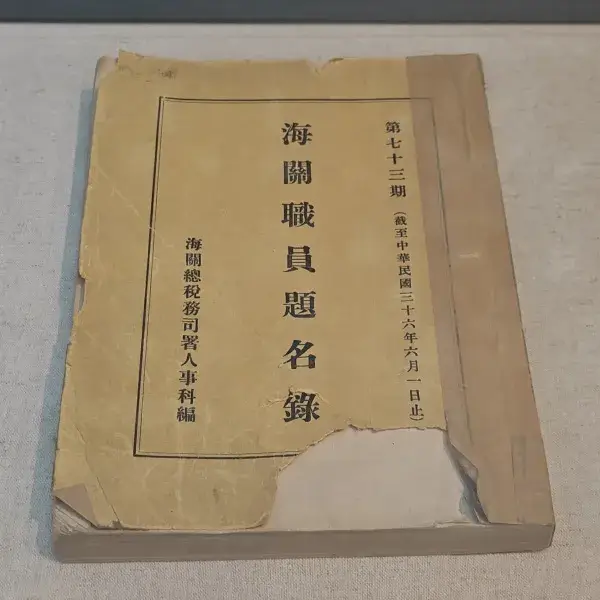 第七十三期（截至中華民國三十六年六月一日止）
海關職員題名錄
海關總稅務司署人事科編